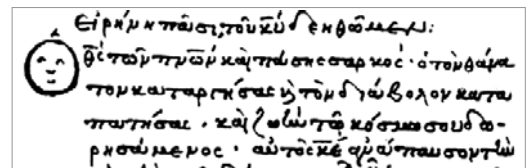 εἰρήνη πᾶσι, τοῦ κ̅υ̅ δεηθῶμεν:
Ὁ θ̅ς̅ τῶν πν̅ων̅ καὶ πάσης σαρκός· ὁ τὸν θάνα
τον καταργήσας ϗ τὸν διάβολον κατα
πατήσας· καὶ ζωὴν τῷ κόσμω σου δω
ρησάμενος· αὐτὸς κ̅ε̅ ἀνάπαυσον τὴν